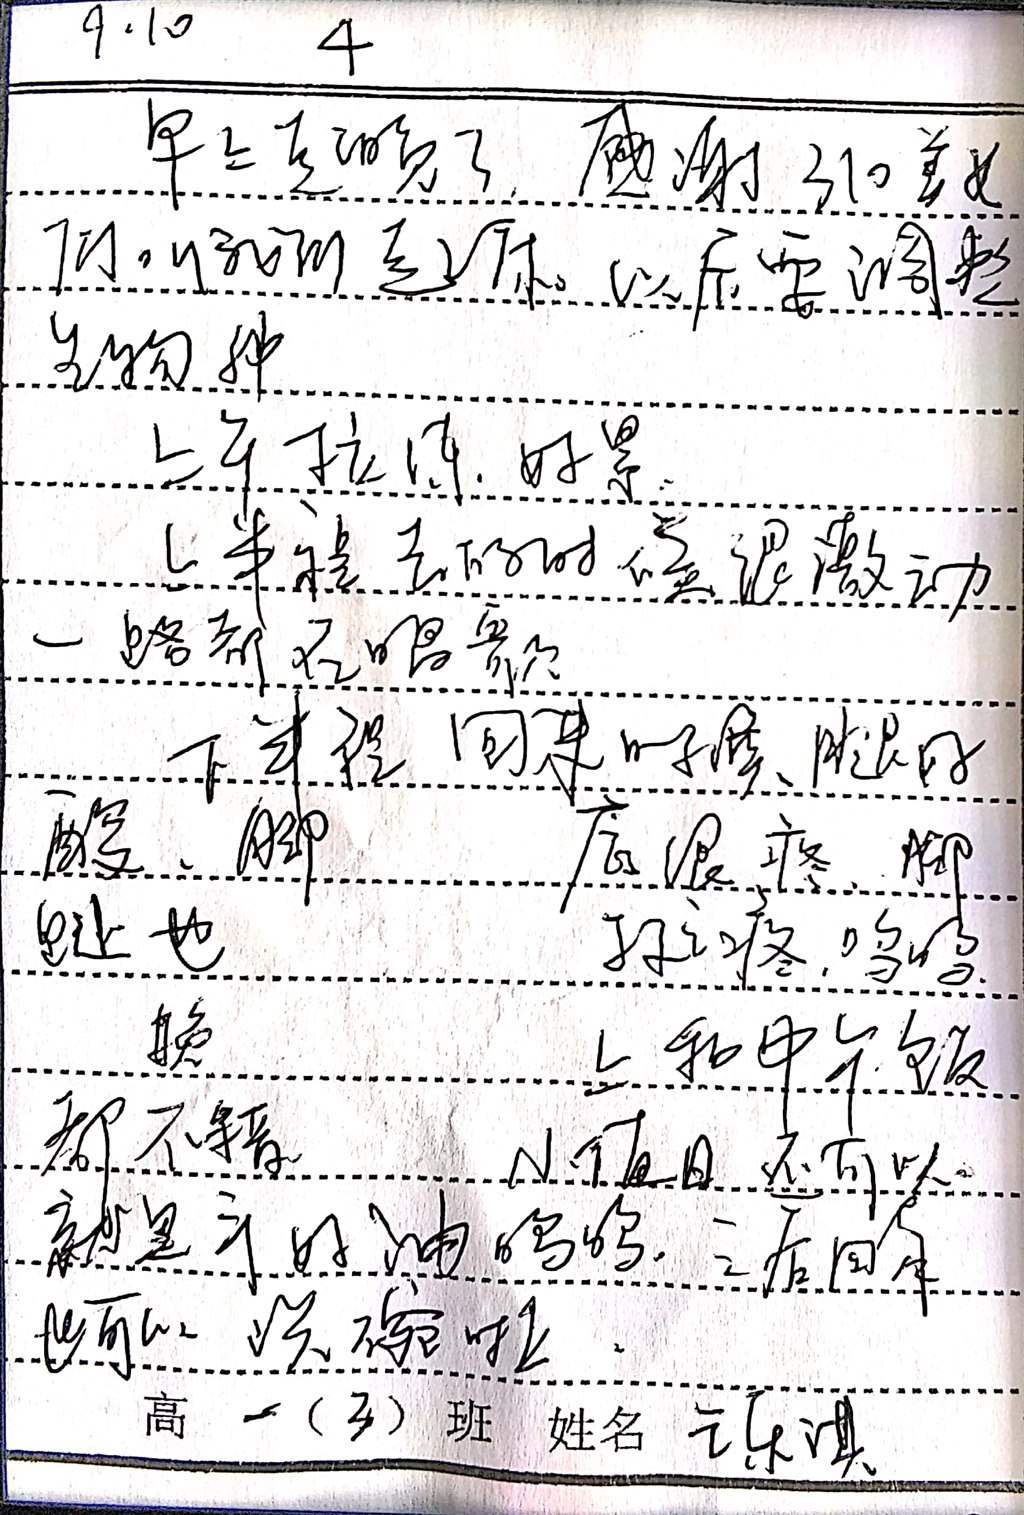 9.10 4
早上起晚了, 感谢引 美女
阿 叫我们起床。以后要调整
生物钟
上午拉练. 好累.
上半程去的时候 很激动
一路都在唱歌
下半程 回来时候、腿好
酸、脚 底很疼、脚
趾也 好疼, 呜呜
晚 上和中午饭
都不错 小值日 还可以.
就是手好油 呜呜. 之后回家
也可以 洗碗啦.
高一(5)班 姓名